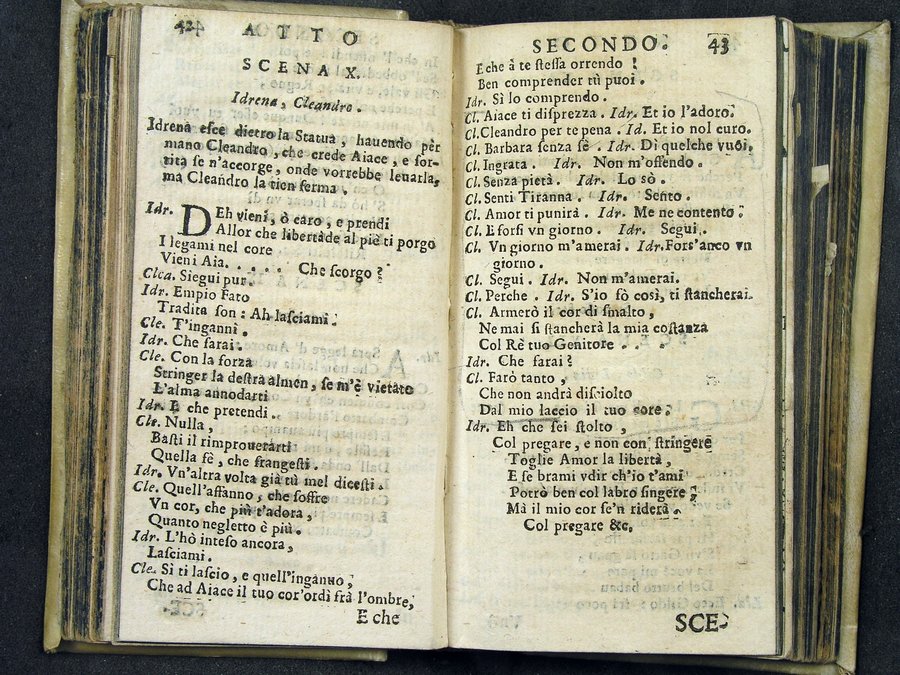 42 ATTO
SCENA X.
Idrena, Cleandro.
Idrena esce dietro la Statua, hauendo per
mano Cleandro, che crede Aiace, e sor-
tita se n'accorge, onde vorrebbe leuarla,
ma Cleandro la tien ferma.
Idr. DEh vieni, ò caro, e prendi
Allor che libertade al piè ti porgo
I legami nel core
Vieni Aia. . . . . Che scorgo?
Clea. Siegui pur.
Idr. Empio Fato
Tradita son: Ah lasciami.
Cle. T'inganni.
Idr. Che farai.
Cle. Con la forza
Stringer la destra almen, se m'è vietato
L'alma annodarti
Idr. E che pretendi.
Cle. Nulla,
Basti il rimprouerarti
Quella fè, che frangesti.
Idr. Vn'altra volta già tù mel dicesti.
Cle. Quell'affanno, che soffre
Vn cor, che più t'adora,
Quanto negletto è più.
Idr. L'hò inteso ancora,
Lasciami.
Cle. Sì ti lascio, e quell'inganno,
Che ad Aiace il tuo cor'ordì frà l'ombre,
E che
SECONDO. 43
E che à te stessa orrendo!
Ben comprender tù puoi.
Idr. Sì lo comprendo.
Cl. Aiace ti disprezza. Idr. Et io l'adoro.
Cl. Cleandro per te pena. Id. Et io nol curo.
Cl. Barbara senza fè. Idr. Dì quelche vuoi.
Cl. Ingrata. Idr. Non m'offendo.
Cl. Senza pietà. Idr. Lo sò.
Cl. Senti Tiranna. Idr. Sento.
Cl. Amor ti punirà. Idr. Me ne contento.
Cl. E forsi vn giorno. Idr. Segui.
Cl. Vn giorno m'amerai. Idr. Fors'anco vn
giorno.
Cl. Segui. Idr. Non m'amerai.
Cl. Perche. Idr. S'io sò così, ti stancherai.
Cl. Armerò il cor di smalto,
Ne mai si stancherà la mia costanza
Col Rè tuo Genitore . . .
Idr. Che farai?
Cl. Farò tanto,
Che non andrà disciolto
Dal mio laccio il tuo core.
Idr. Eh che sei stolto,
Col pregare, e non con' stringere
Toglie Amor la libertà,
E se brami vdir ch'io t'ami
Potrò ben col labro fingere;
Mà il mio cor se'n riderà.
Col pregare &c.
SCE-